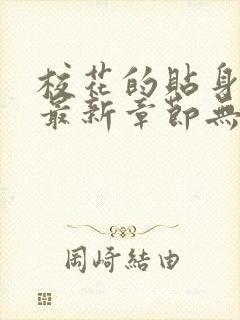 校花的貼身
最新章節無
岡崎結由